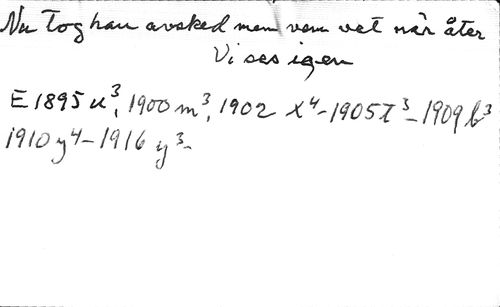 Nu tog han avsked men vem vet när åter
Vi ses igen
E 1895 u³, 1900 m³, 1902 x⁴-1905 I³-1909 b³
1910 y⁴-1916 y³-